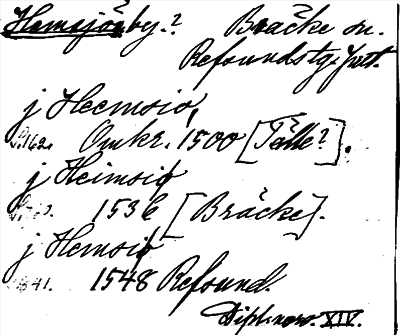 Hemsjöby.? Bräcke sn.
Refsundstg. Jmtl.
j Heemsio,
Omkr. 1500 [Fälle?].
j Heimsio
1536 [Bräcke].
j Hemsio
1548 Refsund.
Dipl. norv. XIV.